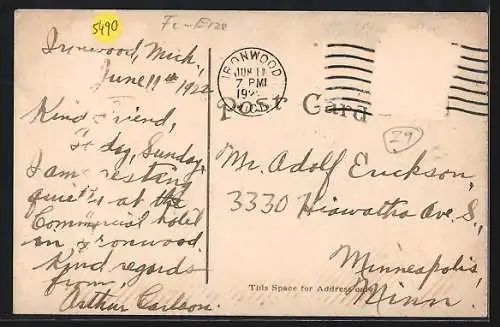 5490
Fc-Erze
Ironwood, Mich.,
June 11th, 1922
Kind Friend,
Today, Sunday,
I am resting
quietly at the
Commercial hotel
in Ironwood.
Kind regards
from,
Arthur Carlson.
IRONWOOD
JUN 11
7 PM
192
MICH.
Post Card
29
Mr. Adolf Erickson,
3330 Hiawatha Ave. S.,
Minneapolis
Minn.
This Space for Address only